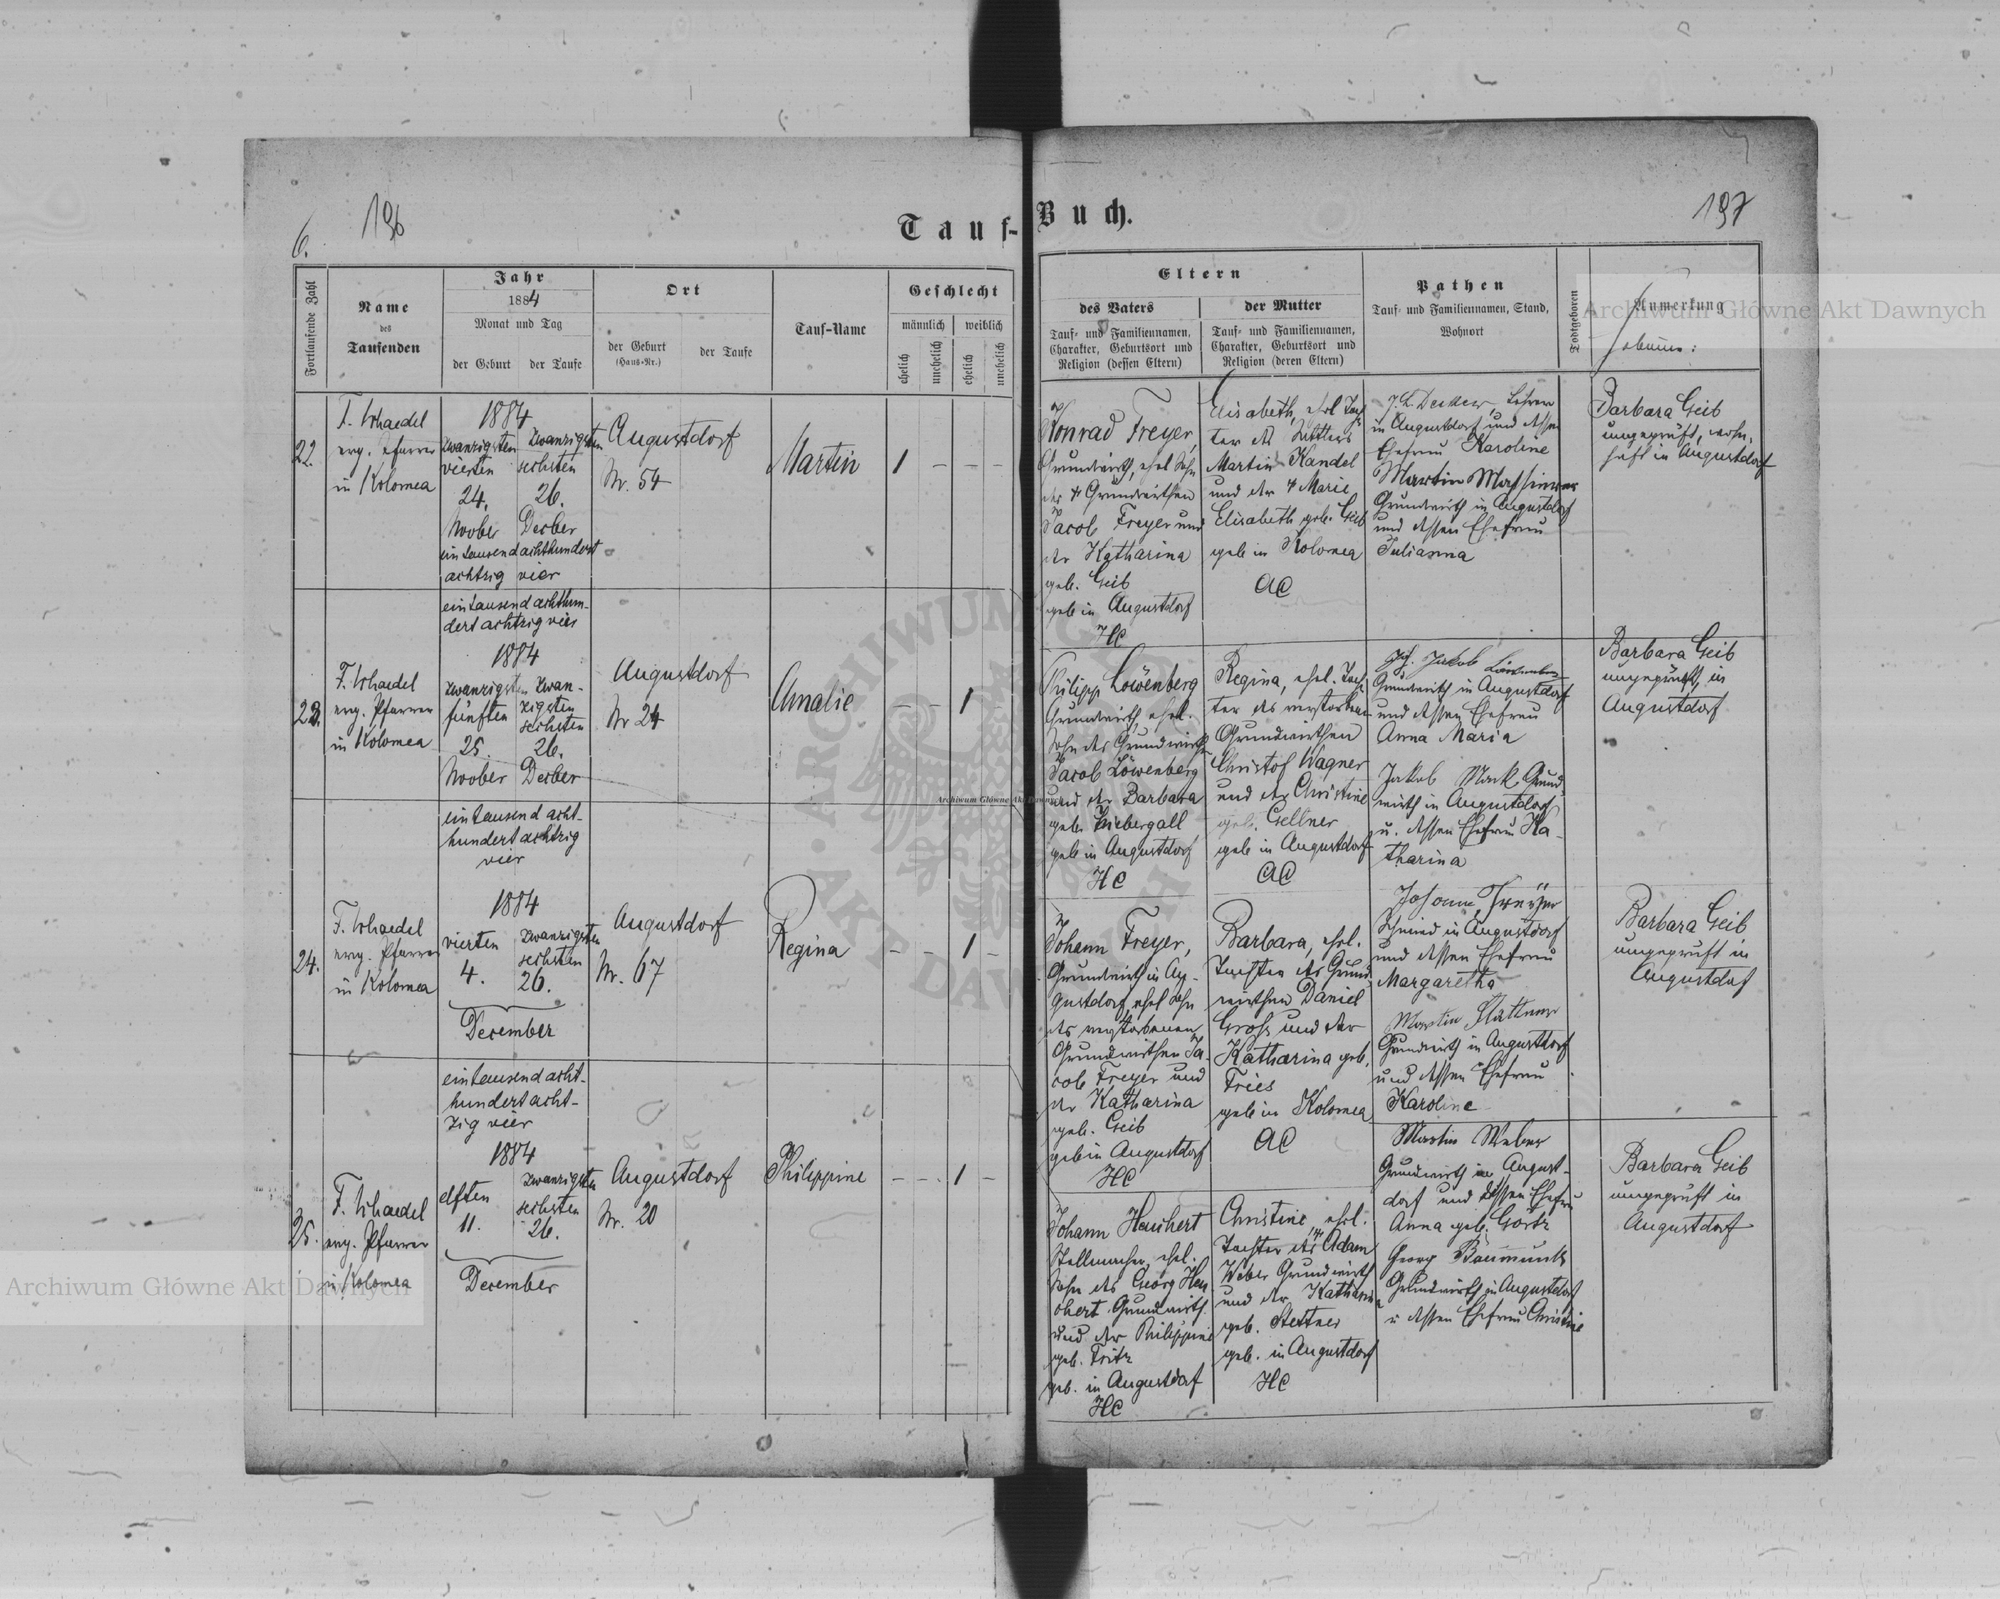 196
6.
Tauf-
Fortlaufende Zahl
Name
des
Taufenden
Jahr
1884
Monat und Tag
der Geburt
der Taufe
Ort
der Geburt
(Haus-Nr.)
der Taufe
Tauf-Name
Geschlecht
männlich
weiblich
ehelich
unehelich
ehelich
unehelich
22.
evg. Pfarrer
in Kolomea
1884
zwanzigsten
vierten
24.
Novber
zwanzigsten
sechsten
26.
Decber
ein tausend achthundert
achtzig vier
Augustdorf
Nr. 54
Martin
1 - - -
23.
evg. Pfarrer
in Kolomea
eintausend achthun-
dert achtzig vier
1884
zwanzigsten
fünften
25.
Novber
zwan-
zigsten
sechsten
26.
Decber
Augustdorf
Nr 24
Amalie
- - 1 -
24.
evg. Pfarrer
in Kolomea
ein tausend acht-
hundert achtzig
vier
1884
vierten
4.
zwanzigsten
sechsten
26.
December
Augustdorf
Nr. 67
Regina
- - 1 -
25.
evg. Pfarrer
in Kolomea
ein tausend acht-
hundert acht-
zig vier
1884
elften
11.
zwanzigsten
sechsten
26.
December
Augustdorf
Nr. 20
Philippine
- - 1 -
Buch.
197
Eltern
des Vaters
Tauf- und Familiennamen,
Charakter, Geburtsort und
Religion (dessen Eltern)
der Mutter
Tauf- und Familiennamen,
Charakter, Geburtsort und
Religion (deren Eltern)
Pathen
Tauf- und Familiennamen, Stand,
Wohnort
Todtgeboren
Anmerkung
Konrad Freyer,
Grundwirth, ehel Sohn
des † Grundwirthen
Jacob Freyer und
der Katharina
geb. Geib
geb in Augustdorf
HC
Elisabeth, ehel Toch
ter des
Martin Kandel
und der † Marie
Elisabeth geb. Geib
geb in Kolomea
AC
J. L. Decker, Lehrer
in Augustdorf und dessen
Ehefrau Karoline
Martin
Grundwirth in Augustdorf
und dessen Ehefrau
Julianna
Barbara Geib
ungeprüft, wohn-
haft in Augustdorf
Philipp Löwenberg
Grundwirth, ehel.
Sohn des Grundwirth
Jacob Löwenberg
und der Barbara
geb. Kiebergall
geb in Augustdorf
HC
Regina, ehel. Toch
ter des verstorbenen
Grundwirthen
Christof Wagner
und der Christine
geb. Gellner
geb in Augustdorf
AC
Jakob Löwenberg
Grundwirth in Augustdorf
und dessen Ehefrau
Anna Maria
Jakob Mack Grund
wirth in Augustdorf
u. dessen Ehefrau Ka-
tharina
Barbara Geib
ungeprüft, in
Augustdorf
Johann Freyer,
Grundwirth in Au-
gustdorf, ehel Sohn
des verstorbenen
Grundwirthen Ja-
cob Freyer und
der Katharina
geb. Geib
geb in Augustdorf
HC
Barbara, ehel.
Tochter des Grund
wirthen Daniel
Groß und der
Katharina geb.
Fries
geb in Kolomea
AC
Schmied in Augustdorf
und dessen Ehefrau
Margaretha
Martin
Grundwirth in Augustdorf
und dessen Ehefrau
Karoline
Barbara Geib
ungeprüft in
Augustdorf
Johann Hauchert
Stellmacher, ehel.
Sohn des Georg Hau
chert Grundwirth
und der Philippine
geb. Fritz
geb. in Augustdorf
HC
Christine, ehel.
Tochter des † Adam
Weber Grundwirth
und der Katharina
geb. Stettner
geb. in Augustdorf
HC
Martin Weber
Grundwirth in August-
dorf und dessen Ehefrau
Anna geb. Görtz
Georg Baumunk
Grundwirth in Augustdorf
u dessen Ehefrau Christine
Barbara Geib
ungeprüft in
Augustdorf
Archiwum Główne Akt Dawnych
Archiwum Główne Akt Dawnych
Archiwum Główne Akt Dawnych